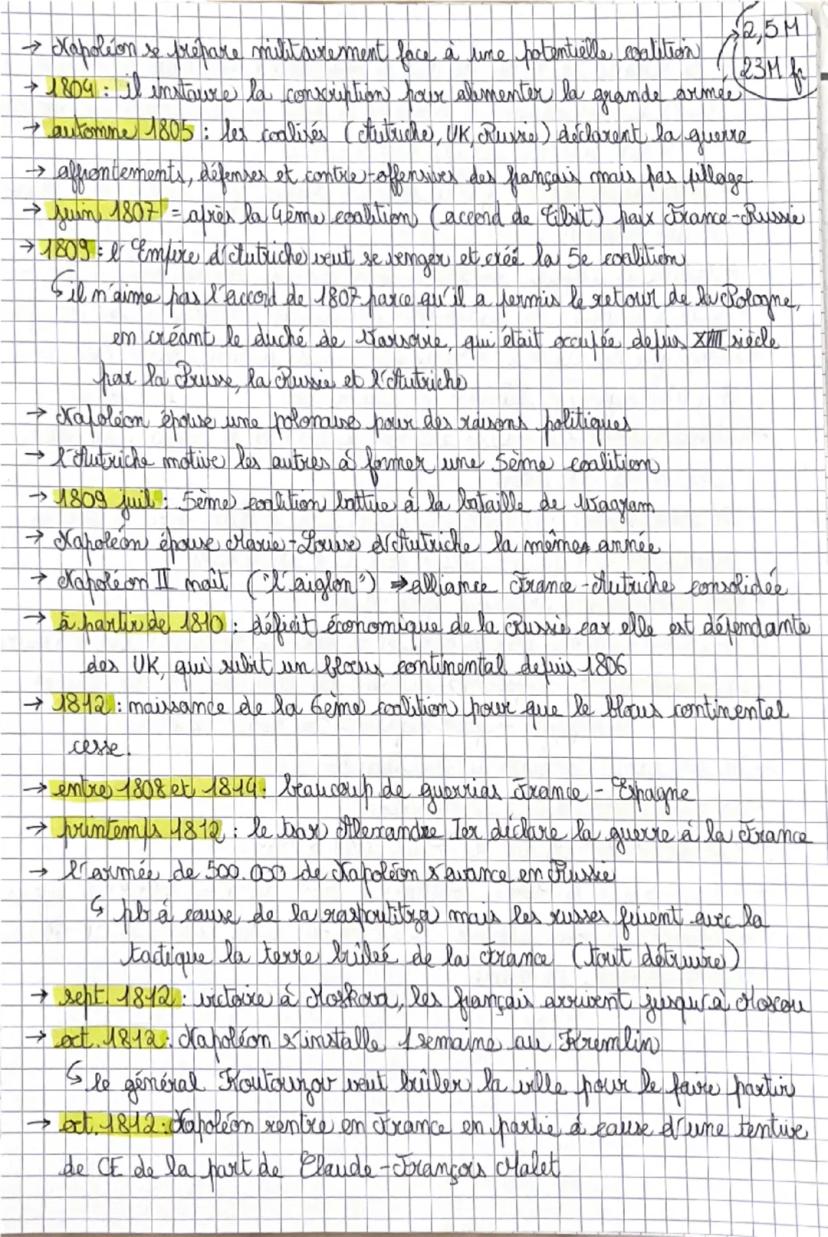 2,5M
→ Napoléon se prépare militairement face à une potentielle coalition
23M fr
→ 1804 : il instaure la conscription pour alimenter la grande armée
→ automne 1805 : les coalisés (Autriche, UK, Russie) déclarent la guerre
→ affrontements, défenses et contre-offensives des français mais pas pillage
→ juin 1807 = après la 4ème coalition (accord de Tilsit) paix France-Russie
→ 1809 : l'Empire d'Autriche veut se venger et créé la 5e coalition
↳ il n'aime pas l'accord de 1807 parce qu'il a permis le retour de la Pologne,
en créant le duché de Varsovie, qui était occupée depuis XVIII siècle
par la Prusse, la Russie et l'Autriche
→ Napoléon épouse une polonaise pour des raisons politiques
→ l'Autriche motive les autres à former une 5ème coalition
→ 1809 juil : 5ème coalition battue à la bataille de Wagram
→ Napoléon épouse Marie-Louise d'Autriche la mêmes année
→ Napoléon II naît ("l'aiglon") → alliance France-Autriche consolidée
→ à partir de 1810 : déficit économique de la Russie car elle est dépendante
des UK, qui subit un blocus continental depuis 1806
→ 1812 : naissance de la 6ème coalition pour que le blocus continental
cesse.
→ entre 1808 et 1814 : beaucoup de guerrias France - Espagne
→ printemps 1812 : le tsar Alexandre Ier déclare la guerre à la France
→ l'armée de 500.000 de Napoléon s'avance en Russie
↳ pb à cause de la raspoutitza mais les russes fuient avec la
tactique la terre brûleé de la France (tout détruire)
→ sept. 1812 : victoire à Moskova, les français arrivent jusqu'à Moscou
→ oct. 1812 : Napoléon s'installe 1 semaine au Kremlin
↳ le général Koutouzov veut brûler la ville pour le faire partir
→ oct. 1812 : Napoléon rentre en France en partie à cause d'une tentive
de CE de la part de Claude-François Malet